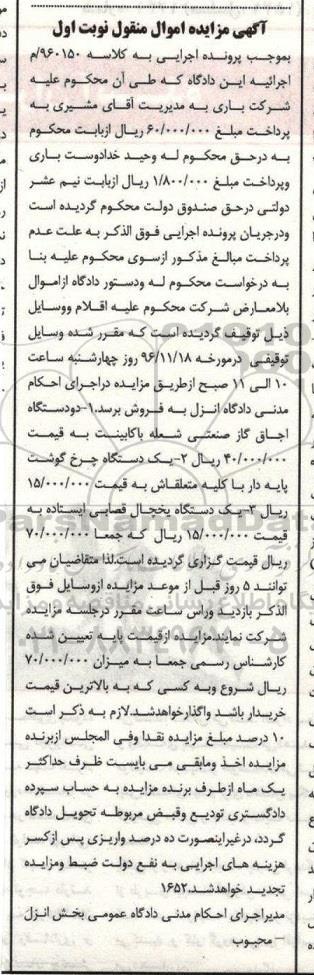 آگهی مزایده اموال منقول نوبت اول
بموجب پرونده اجرایی به کلاسه ۹۶۰۱۵۰/م
اجرائیه این دادگاه که طی آن محکوم علیه
شرکت باری به مدیریت آقای مشیری به
پرداخت مبلغ ۶۰/۰۰۰/۰۰۰ ریال ازبابت محکوم
به درحق محکوم له وحید خدادوست یاری
وپرداخت مبلغ ۱/۸۰۰/۰۰۰ ریال ازبابت نیم عشر
دولتی درحق صندوق دولت محکوم گردیده است
ودرجریان پرونده اجرایی فوق الذکر به علت عدم
پرداخت مبالغ مذکور ازسوی محکوم علیه بنا
به درخواست محکوم له ودستور دادگاه ازاموال
بلامعارض شرکت محکوم علیه اقلام ووسایل
ذیل توقیف گردیده است که مقرر شده وسایل
توقیفی درمورخه ۹۶/۱۱/۱۸ روز چهارشنبه ساعت
۱۰ الی ۱۱ صبح ازطریق مزایده دراجرای احکام
مدنی دادگاه انزل به فروش برسد.۱-دودستگاه
اجاق گاز صنعتی شعله باکابینت به قیمت
۴۰/۰۰۰/۰۰۰ ریال ۲-یک دستگاه چرخ گوشت
پایه دار با کلیه متعلقاش به قیمت ۱۵/۰۰۰/۰۰۰
ریال ۳-یک دستگاه یخچال قصابی ایستاده به
قیمت ۱۵/۰۰۰/۰۰۰ ریال که جمعا ۷۰/۰۰۰/۰۰۰
ریال قیمت گزاری گردیده است.لذا متقاضیان می
توانند ۵ روز قبل از موعد مزایده ازوسایل فوق
الذکر بازدید وراس ساعت مقرر درجلسه مزایده
شرکت نمایند.مزایده ازقیمت پایه تعیین شده
کارشناس رسمی جمعا به میزان ۷۰/۰۰۰/۰۰۰
ریال شروع وبه کسی که به بالاترین قیمت
خریدار باشد واگذارخواهدشد.لازم به ذکر است
۱۰ درصد مبلغ مزایده نقدا وفی المجلس ازبرنده
مزایده اخذ ومابقی می بایست ظرف حداکثر
یک ماه ازطرف برنده مزایده به حساب سپرده
دادگستری تودیع وقبض مربوطه تحویل دادگاه
گردد، درغیراینصورت ده درصد واریزی پس ازکسر
هزینه های اجرایی به نفع دولت ضبط ومزایده
تجدید خواهدشد.۱۶۵۲
مدیراجرای احکام مدنی دادگاه عمومی بخش انزل
– محبوب